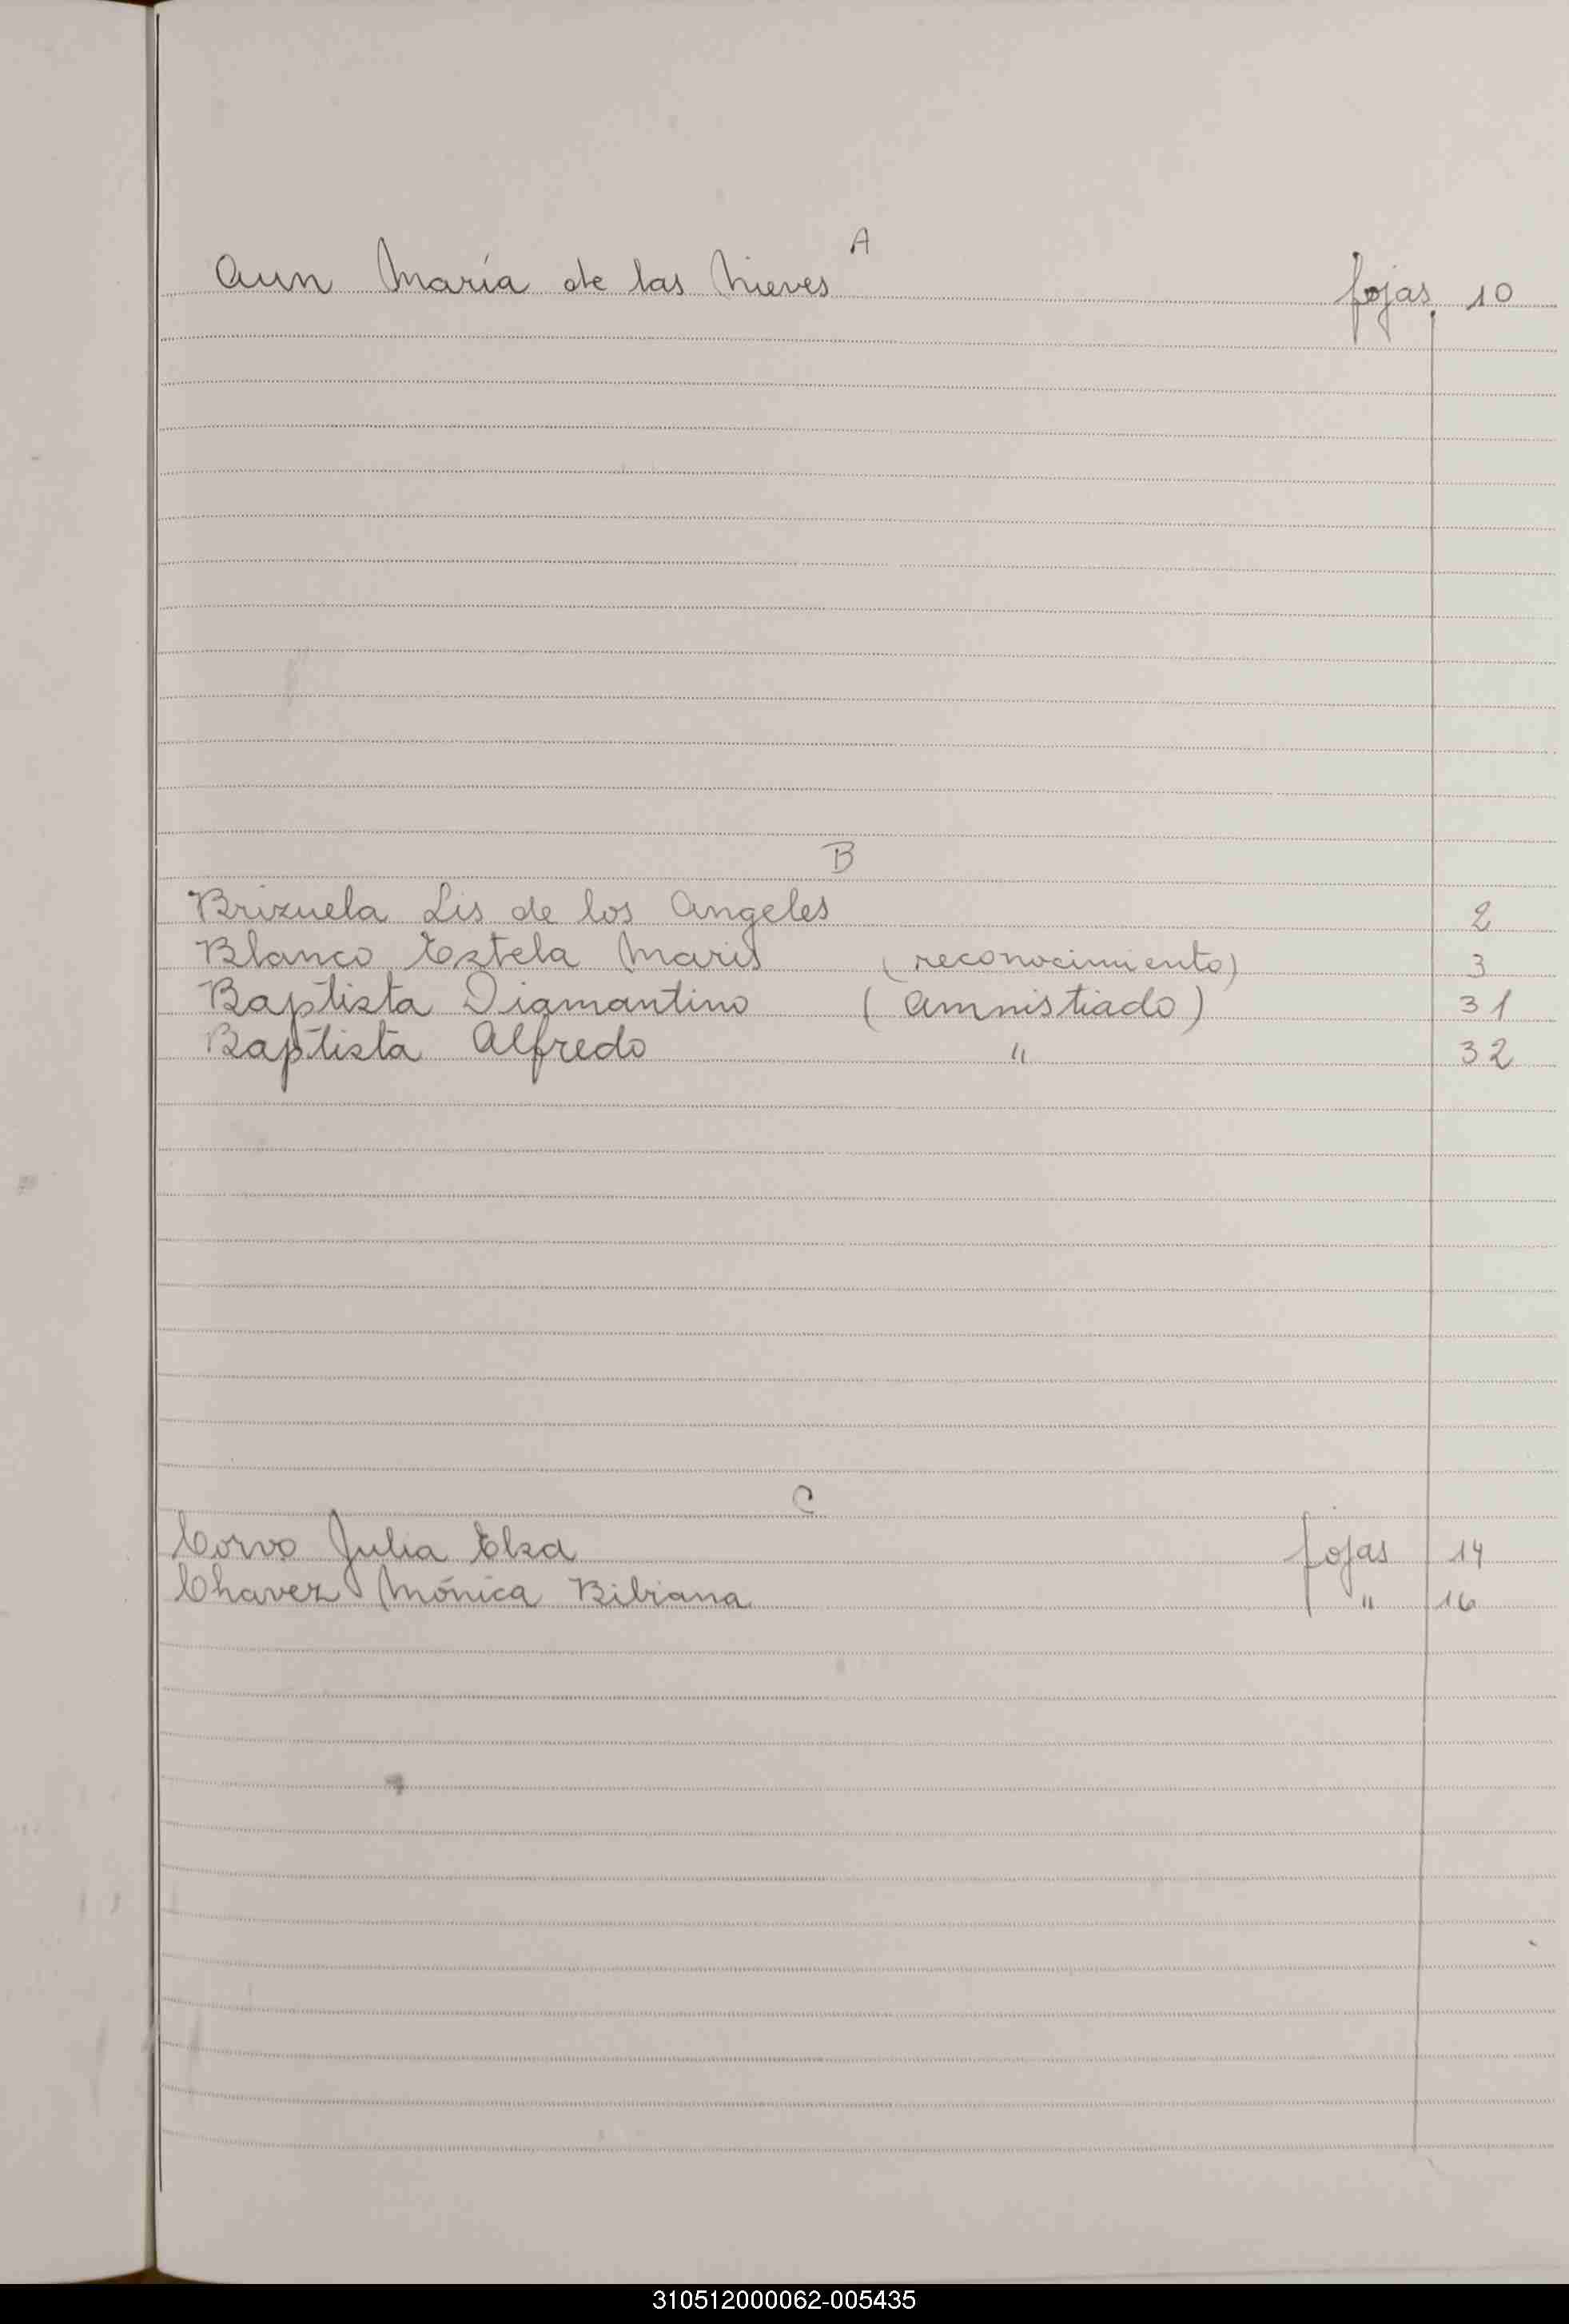 A
Aun María de las Nieves fojas 10
B
Brizuela Lis de los Angeles 2
Blanco Estela Maris (reconocimiento) 3
Baptista Diamantino (Amnistiado) 31
Baptista Alfredo " 32
C
Corvo Julia Elsa fojas 14
Chavez Mónica Bibiana " 16
310512000062-005435